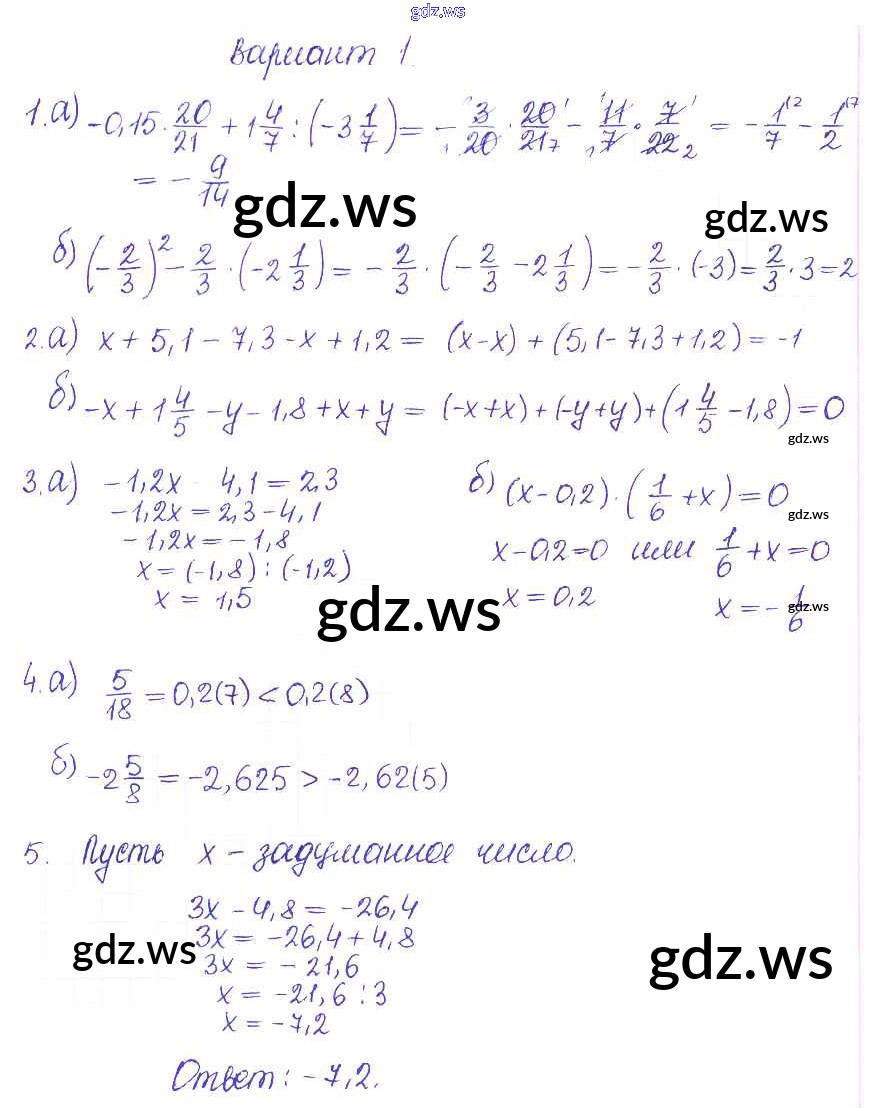 gdz.ws
Вариант 1.
1.а) -0,15 · 20/21 + 1 4/7 : (-3 1/7) = - 3/20 · 20/21 - 11/7 · 7/22 = - 1/7 - 1/2
= - 9/14
gdz.ws
gdz.ws
б) (-2/3)² - 2/3 · (-2 1/3) = - 2/3 · (-2/3 - 2 1/3) = - 2/3 · (-3) = 2/3 · 3 = 2
2.а) x + 5,1 - 7,3 - x + 1,2 = (x-x) + (5,1 - 7,3 + 1,2) = -1
б) -x + 1 4/5 - y - 1,8 + x + y = (-x+x) + (-y+y) + (1 4/5 - 1,8) = 0
gdz.ws
3.а) -1,2x 4,1 = 2,3
-1,2x = 2,3 - 4,1
-1,2x = -1,8
x = (-1,8) : (-1,2)
x = 1,5
б) (x - 0,2) · (1/6 + x) = 0
gdz.ws
x - 0,2 = 0 или 1/6 + x = 0
x = 0,2 x = - 1/6
gdz.ws
gdz.ws
4.а) 5/18 = 0,2(7) < 0,2(8)
б) -2 5/8 = -2,625 > -2,62(5)
5. Пусть x - задуманное число.
3x - 4,8 = -26,4
3x = -26,4 + 4,8
3x = -21,6
x = -21,6 : 3
x = -7,2
gdz.ws
gdz.ws
Ответ: -7,2.